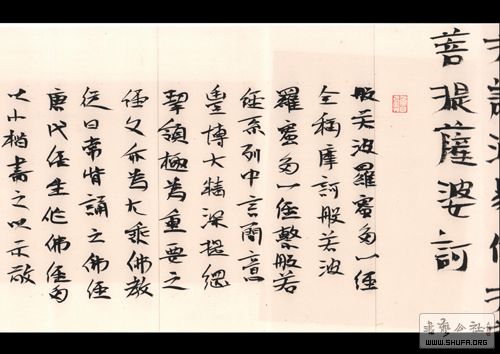 菩提薩婆訶
般若波羅蜜多心经
全稱摩訶般若波
羅蜜多心经繫般若
经系列中言简意
豐博大精深提綱
挈領極為重要之
经文亦為大乘佛教
徒日常背誦之佛经
唐代经生作佛经均
以小楷書之以示敬
WWW.SHUFA.ORG